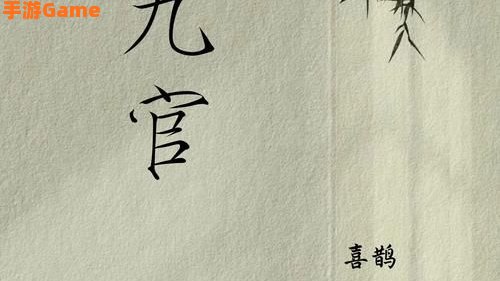 手游Game
九官
喜鹊